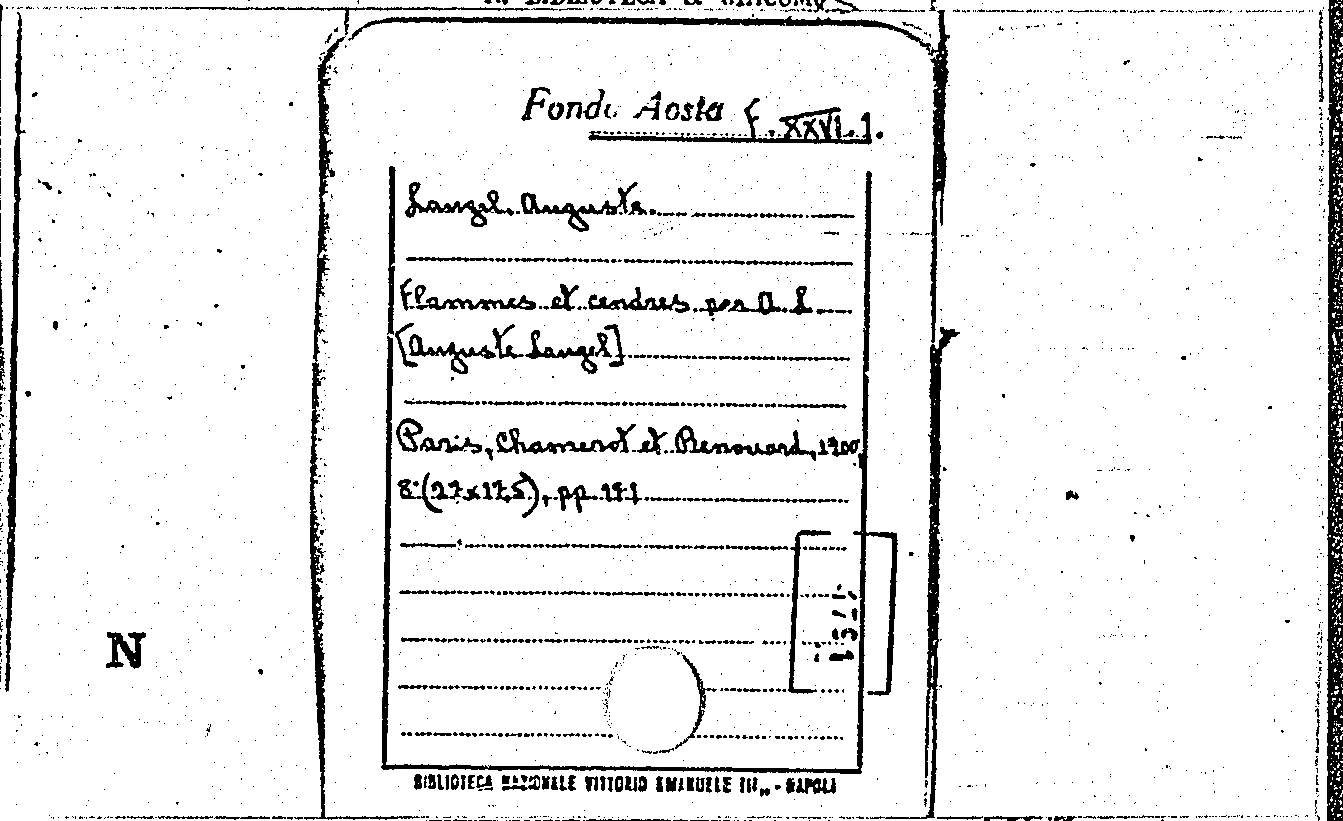 Fondo Aosta F. XXVI. 1.
Laugel. Auguste.
Flammes et cendres par A. L.
[Auguste Laugel]
Paris, Chamerot et Renouard, 1900,
8°(27x17,5), pp. 191
N
BIBLIOTECA NAZIONALE VITTORIO EMANUELE III„ - NAPOLI